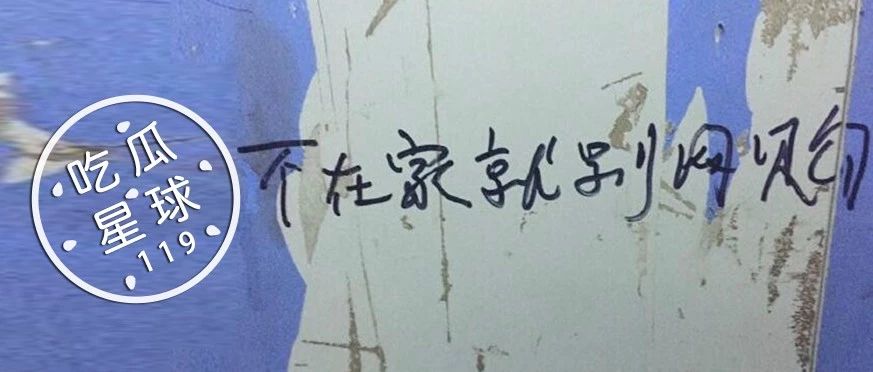 吃瓜
星球
119
不在家就别网购